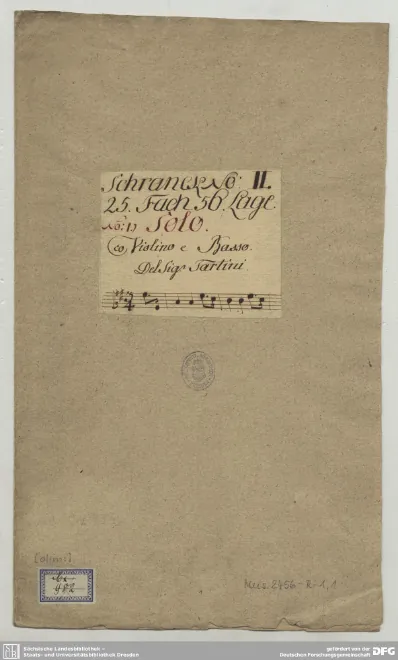 Schranck No: II.
25. Fach 56. Lage.
No: 1) Solo.
co Violino e Basso.
Del Sigr Tartini
Mus. 2456-R-1,1
Sächsische Landesbibliothek –
Staats- und Universitätsbibliothek Dresden
gefördert von der
Deutschen Forschungsgemeinschaft DFG